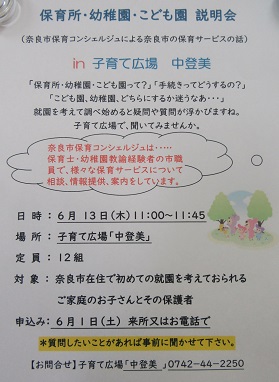 保育所・幼稚園・こども園 説明会
（奈良市保育コンシェルジュによる奈良市の保育サービスの話）
in 子育て広場 中登美
「保育所・幼稚園・こども園って？」「手続きってどうするの？」
「こども園、幼稚園、どちらにするか迷うなあ・・・」
就園を考えて調べ始めると疑問や質問が浮かびますね。
子育て広場で、聞いてみませんか。
奈良市保育コンシェルジュは・・・・・
保育士・幼稚園教諭経験者の市職
員で、様々な保育サービスについて
相談、情報提供、案内をしています。
日 時：６月 13日（木）11：00～11：45
場 所：子育て広場「中登美」
定 員：１２組
対 象：奈良市在住で初めての就園を考えておられる
ご家庭のお子さんとその保護者
申込み：６月１日（土）来所又はお電話で
＊質問したいことがあれば事前に聞かせて下さい。
【お問合せ】子育て広場「中登美」0742－44－2250